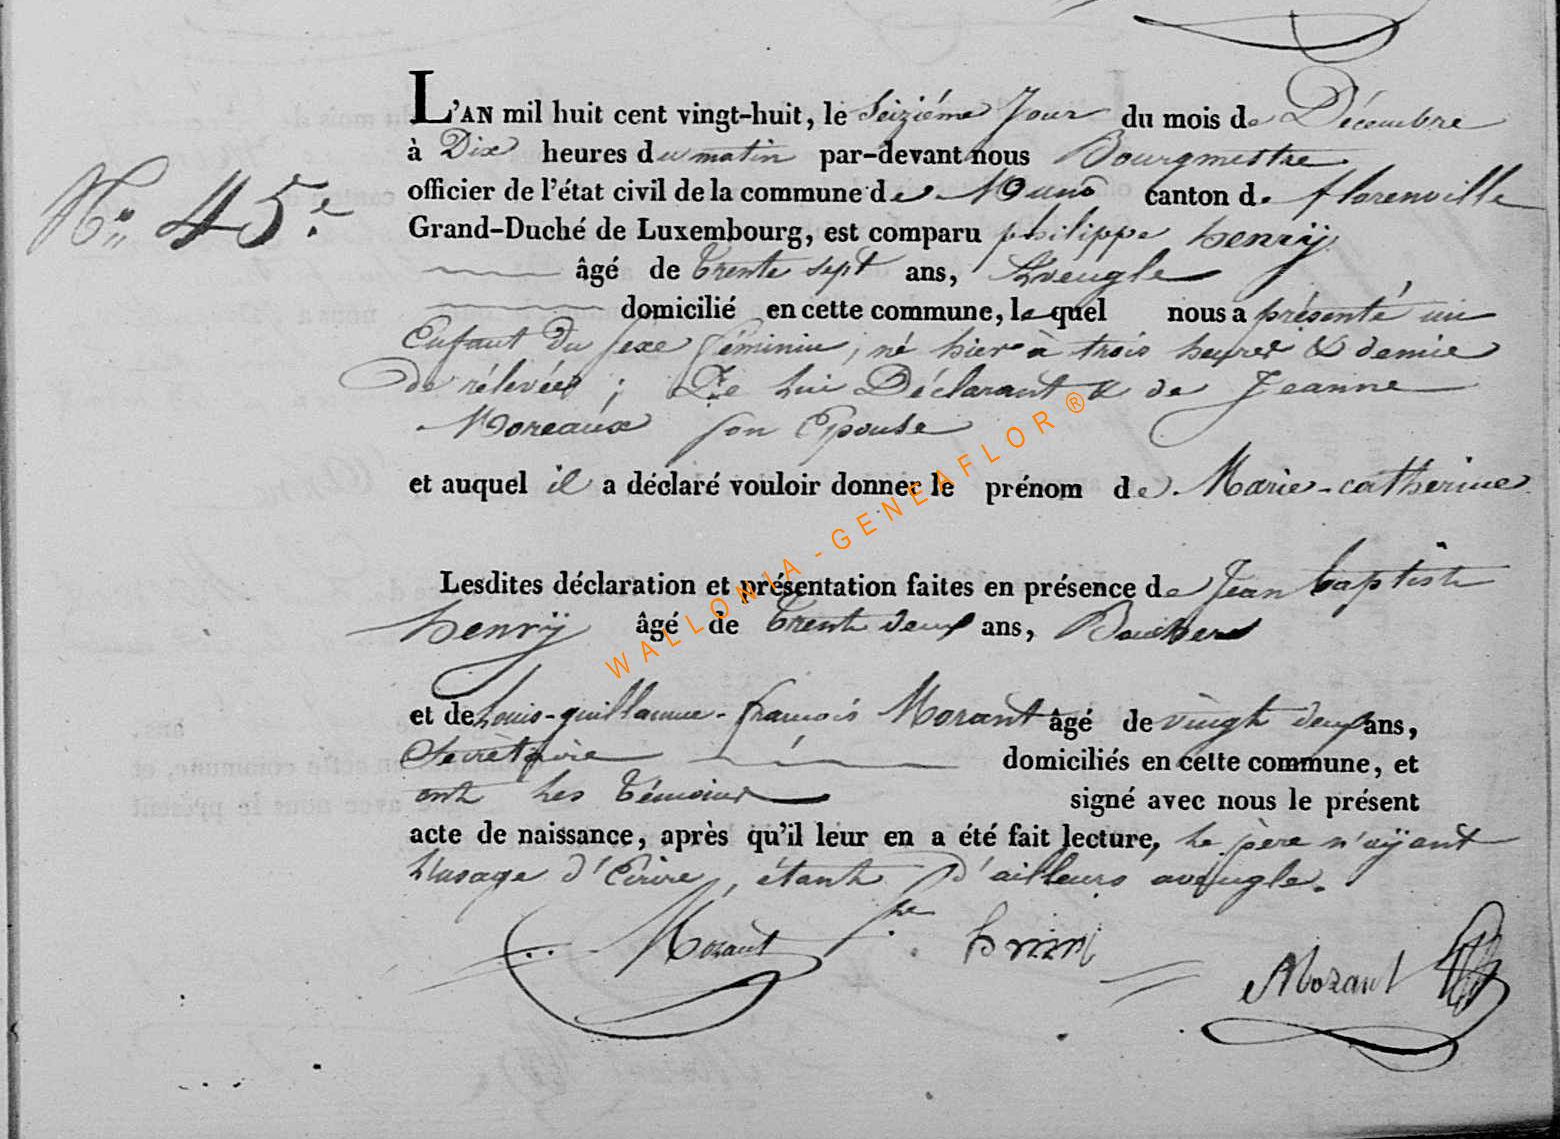 L'AN mil huit cent vingt-huit, le Seiziéme Jour du mois de Décembre
à Dix heures du matin par-devant nous Bourgmestre
N° 45.e
officier de l'état civil de la commune de Muno canton de florenville
Grand-Duché de Luxembourg, est comparu philippe henrÿ
âgé de trente sept ans, Aveugle
domicilié en cette commune, le quel nous a présenté un
Enfant Du sexe féminin, né hier à trois heures & demie
de rélevée ; De lui Déclarant & de Jeanne
Moreaux son Epouse
et auquel il a déclaré vouloir donner le prénom de Marie-catherine
Lesdites déclaration et présentation faites en présence de Jean baptiste
henrÿ âgé de trente deux ans,
et de Louis-guillaume-françois Morant âgé de vingt deux ans,
Secrètaire domiciliés en cette commune, et
ont les témoins signé avec nous le présent
acte de naissance, après qu'il leur en a été fait lecture, le père n'aÿant
l'usage d'écrire, étant d'ailleurs aveugle.
Morant hnirj Morant
WALLONIA-GENEAFLOR®